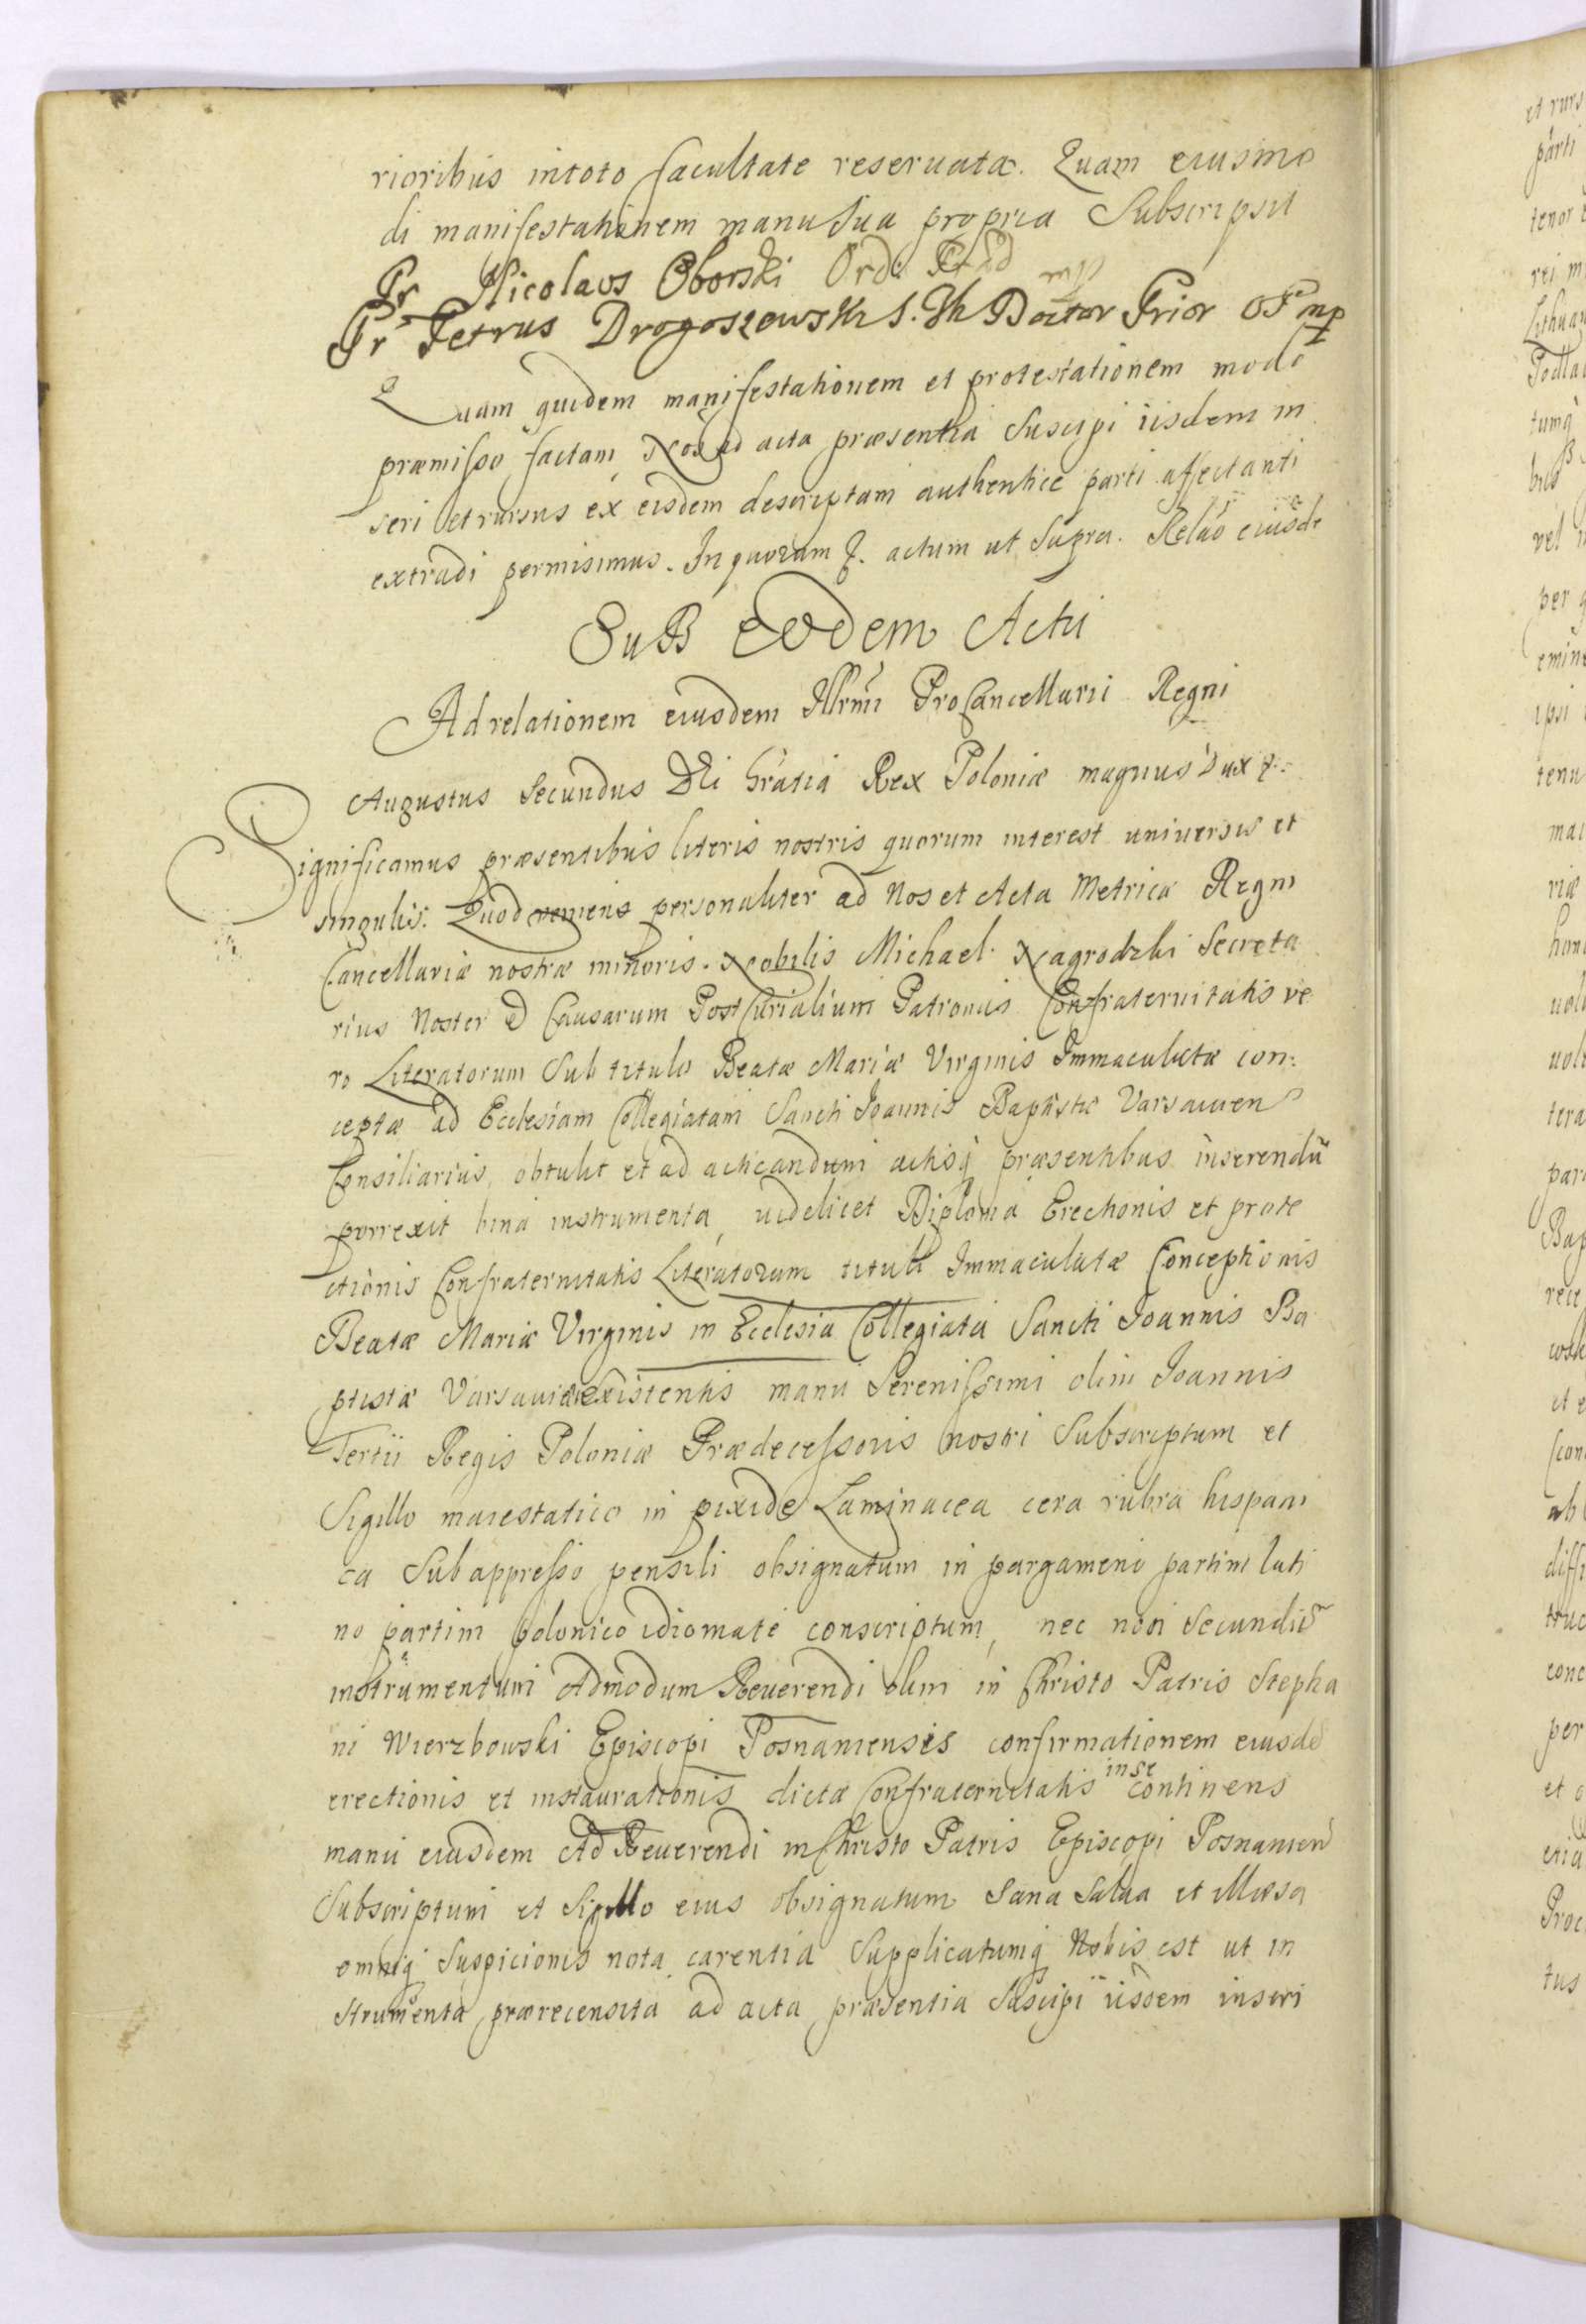 rioribus intoto facultate reseruata. Quam eiusmo
di manifestationem manu sua propria Subscripsit
Fr Nicolaus Oborski Ord: Præd mp
Fr Petrus Drogoszewski S. Th Doctor Prior OP mp
Quam quidem manifestationem et protestationem modo
præmisso factam, Nos ad acta præsentia Suscipi iisdem in
seri et rursus ex eisdem descriptam authentice parti affectanti
extradi permisimus. In quorum &. actum ut Supra. Relaõ eiusde
SuB Eodem Actu
Ad relationem eiusdem Illrmi ProCancellarii Regni
Augustus Secundus Dei Gratia Rex Poloniæ magnus Dux &:
Significamus præsentibus literis nostris quorum interest uniuersis et
singulis. Quod veniens personaliter ad Nos et Acta Metricæ Regni
Cancellariæ nostræ minoris. Nobilis Michael Nagrodzki Secreta
rius Noster & Causarum PostCurialium Patronus Confraternitatis ve
ro Literatorum Sub titulo Beatæ Mariæ Virginis Immaculatæ con:
ceptæ ad Ecclesiam Collegiatam Sancti Joannis Baptistæ Varsauien
Consiliarius, obtulit et ad acticandum actisq præsentibus inserendu
porrexit bina instrumenta, uidelicet Diploma Erectionis et prote
ctionis Confraternitatis Literatorum tituli Immaculatæ Conceptionis
Beatæ Mariæ Virginis in Ecclesia Collegiata Sancti Joannis Ba
ptistæ Varsauiæ existentis manu Serenissimi olim Joannis
Tertii Regis Poloniæ Prædecessoris nostri Subscriptum et
Sigillo maiestatico in pixide Laminacea cera rubra hispani
ca Sub appresso pensili obsignatum in pargameno partim lati
no partim polonico idiomate conscriptum, nec non Secundũ
instrumentum Admodum Reuerendi olim in Christo Patris Stepha
ni Wierzbowski Episcopi Posnaniensis confirmationem eiusdẽ
erectionis et instaurationis dictæ Confraternitatis in se continens
manu eiusdem Ad Reuerendi in Christo Patris Episcopi Posnanien
Subscriptum et Sigillo eius obsignatum Sana Salua et illæsa
omniq Suspicionis nota carentia Supplicatumq Nobis est ut in
strumenta prærecensita ad acta præsentia Suscipi iisdem inseri